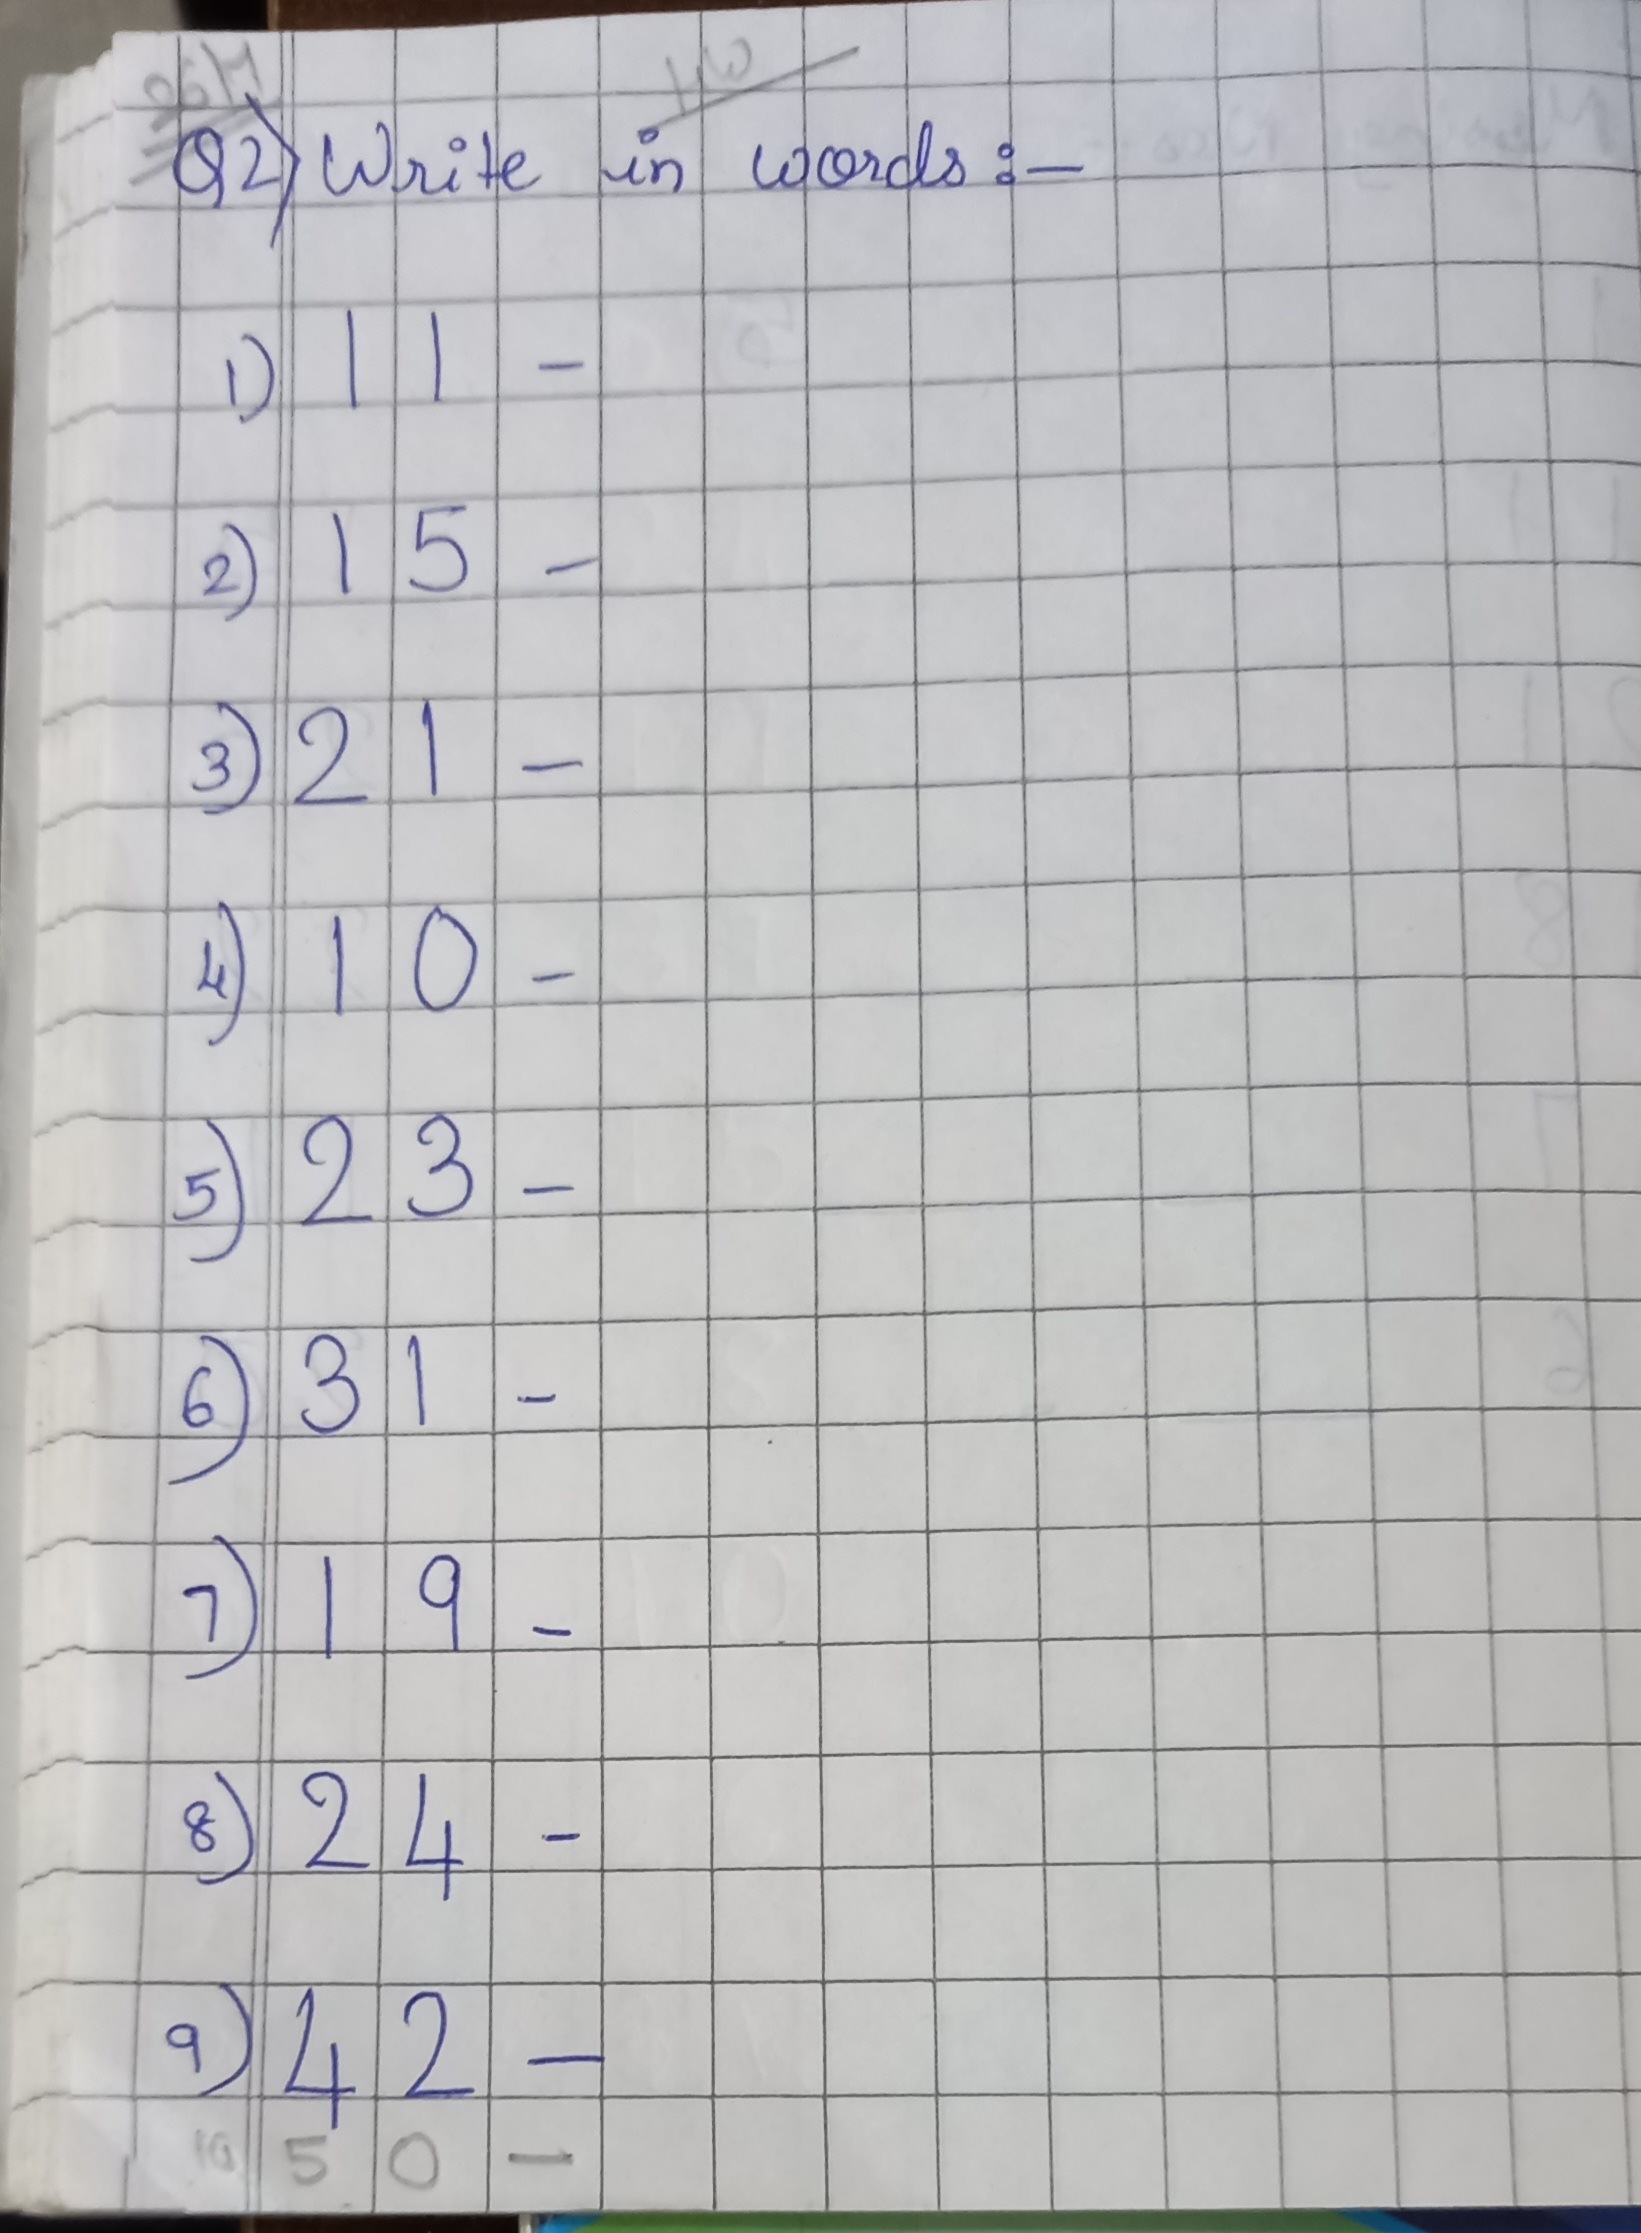 26/7 HW
Q2) Write in words:-
1) 11 -
2) 15 -
3) 21 -
4) 10 -
5) 23 -
6) 31 -
7) 19 -
8) 24 -
9) 42 -
10 50 -